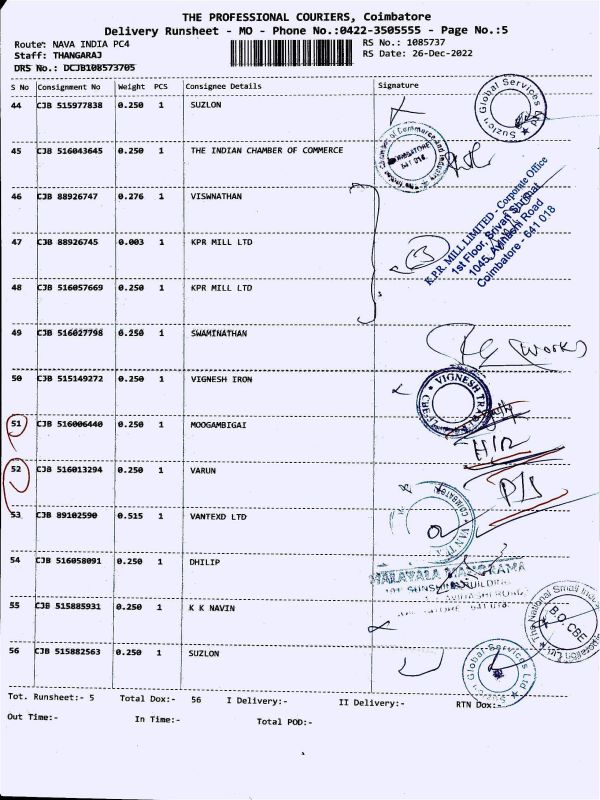 THE PROFESSIONAL COURIERS, Coimbatore
Delivery Runsheet - MO - Phone No.:0422-3505555 - Page No.:5
Route: NAVA INDIA PC4
RS No.: 1085737
Staff: THANGARAJ
RS Date: 26-Dec-2022
DRS No.: DCJB108573705
S No Consignment No Weight PCS Consignee Details Signature
44 CJB 515977838 0.250 1 SUZLON
Suzlon Global Services Ltd
45 CJB 516043645 0.250 1 THE INDIAN CHAMBER OF COMMERCE
46 CJB 88926747 0.276 1 VISWNATHAN
47 CJB 88926745 0.003 1 KPR MILL LTD
K.P.R. MILL LIMITED - Corporate Office
1st Floor, Srivari Shrimat
1045, Avinashi Road
Coimbatore - 641 018
48 CJB 516057669 0.250 1 KPR MILL LTD
49 CJB 516027798 0.250 1 SWAMINATHAN
(Works)
50 CJB 515149272 0.250 1 VIGNESH IRON
51 CJB 516006440 0.250 1 MOOGAMBIGAI
52 CJB 516013294 0.250 1 VARUN
53 CJB 89102590 0.515 1 VANTEXD LTD
54 CJB 516058091 0.250 1 DHILIP
MALAYALA MANORAMA
55 CJB 515885931 0.250 1 K K NAVIN
56 CJB 515882563 0.250 1 SUZLON
Suzlon Global Services Ltd
Tot. Runsheet:- 5 Total Dox:- 56 I Delivery:- II Delivery:- RTN Dox:-
Out Time:- In Time:- Total POD:-